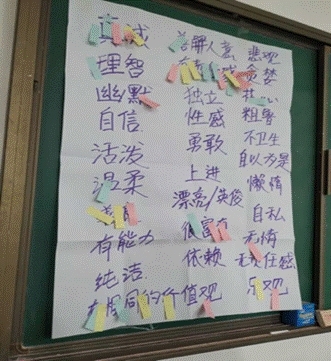 真诚 善解人意 悲观
理智 贪婪
幽默
自信 独立 粗鲁
活泼 性感 不卫生
温柔 勇敢 自以为是
上进 懒惰
有能力 漂亮/英俊 自私
纯洁 很富有 无情
依赖 无责任感
有共同的价值观 乐观